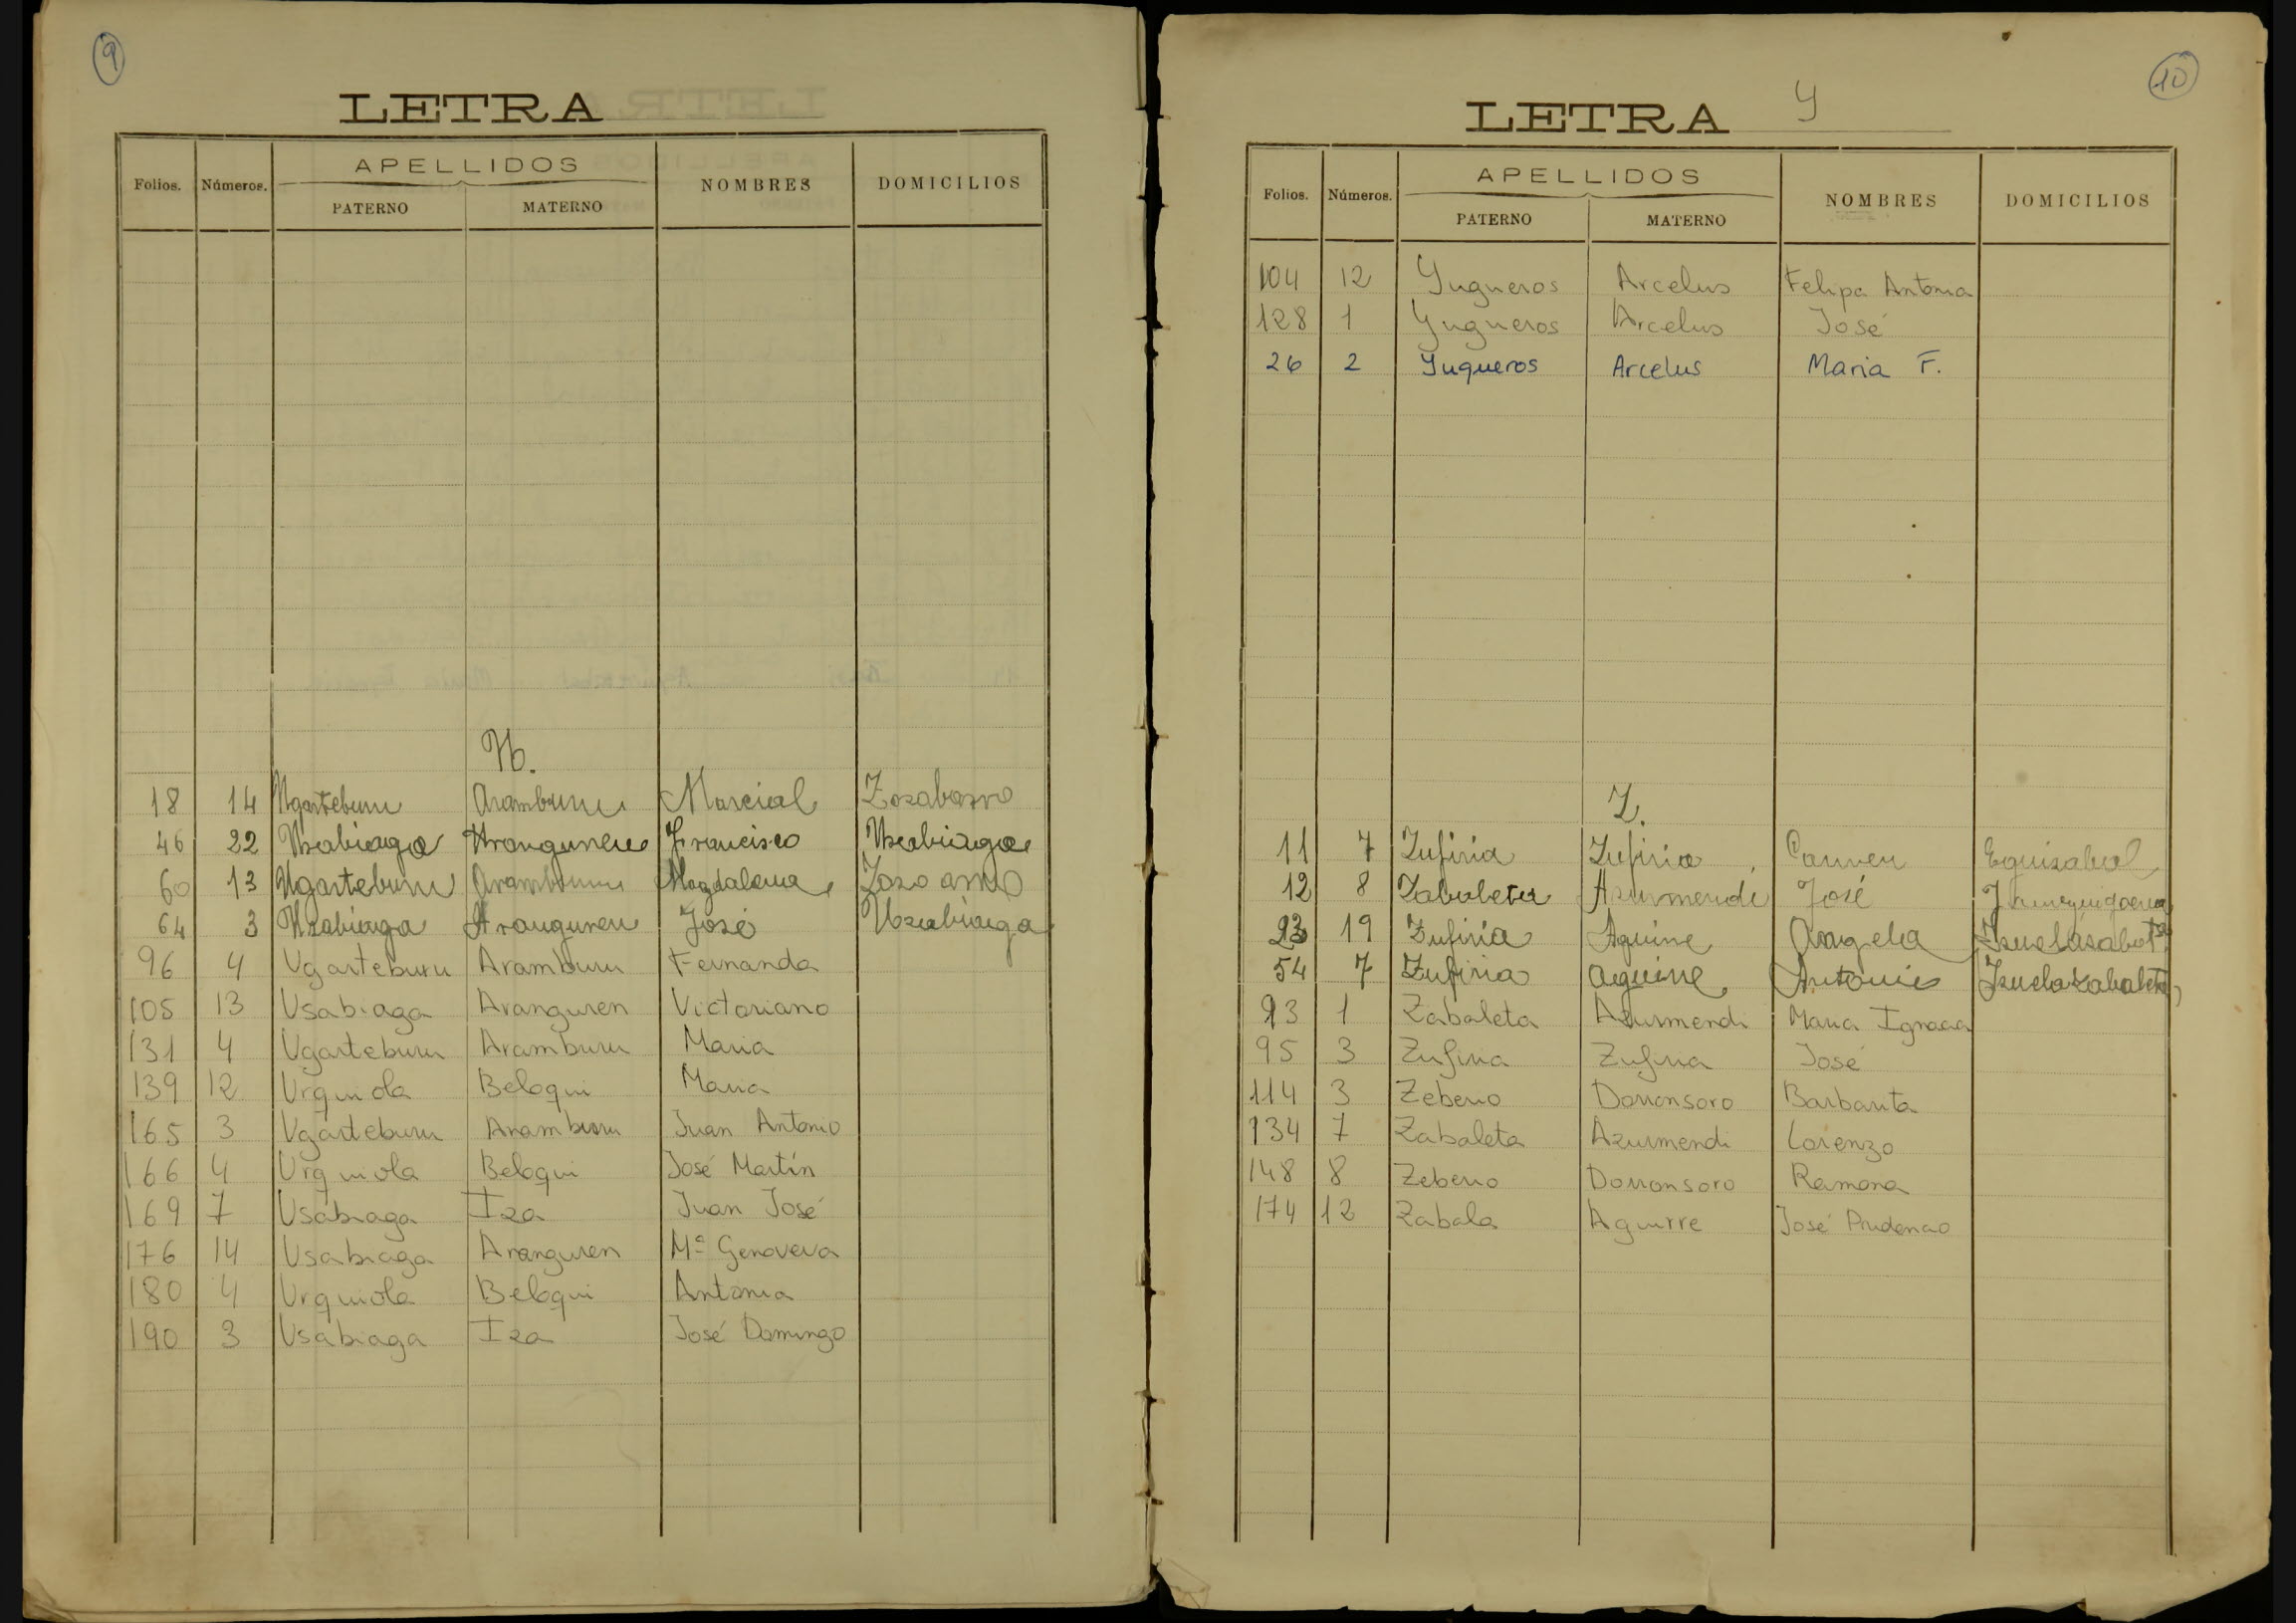 9
LETRA
Folios. Números. APELLIDOS NOMBRES DOMICILIOS
PATERNO MATERNO
U.
18 14 Ugarteburu Aramburu Marcial
46 22 Usabiaga Aranguren Francisco Usabiaga
60 13 Ugarteburu Aramburu Magdalena
64 3 Usabiaga Aranguren José Usabiaga
96 4 Ugarteburu Aramburu Fernanda
105 13 Usabiaga Aranguren Victoriano
131 4 Ugarteburu Aramburu Maria
139 12 Urquiola Beloqui Maria
165 3 Ugarteburu Aramburu Juan Antonio
166 4 Urquiola Beloqui José Martín
169 7 Usabiaga Iza Juan José
176 14 Usabiaga Aranguren Mª Genoveva
180 4 Urquiola Beloqui Antonia
190 3 Usabiaga Iza José Domingo
10
LETRA Y
Folios. Números. APELLIDOS NOMBRES DOMICILIOS
PATERNO MATERNO
104 12 Yugueros Arcelus Felipa Antonia
128 1 Yugueros Arcelus José
26 2 Yugueros Arcelus Maria F.
Z.
11 7 Zufiria Zufiria Carmen Eguizabal
12 8 Zabaleta Azurmendi José
23 19 Zufiria Aguirre Angela
54 7 Zufiria Aguirre Antonio
93 1 Zabaleta Azurmendi Maria Ignacia
95 3 Zufiria Zufiria José
114 3 Zeberio Dorronsoro Barbarita
134 7 Zabaleta Azurmendi Lorenzo
148 8 Zeberio Dorronsoro Ramona
174 12 Zabala Aguirre José Prudencio